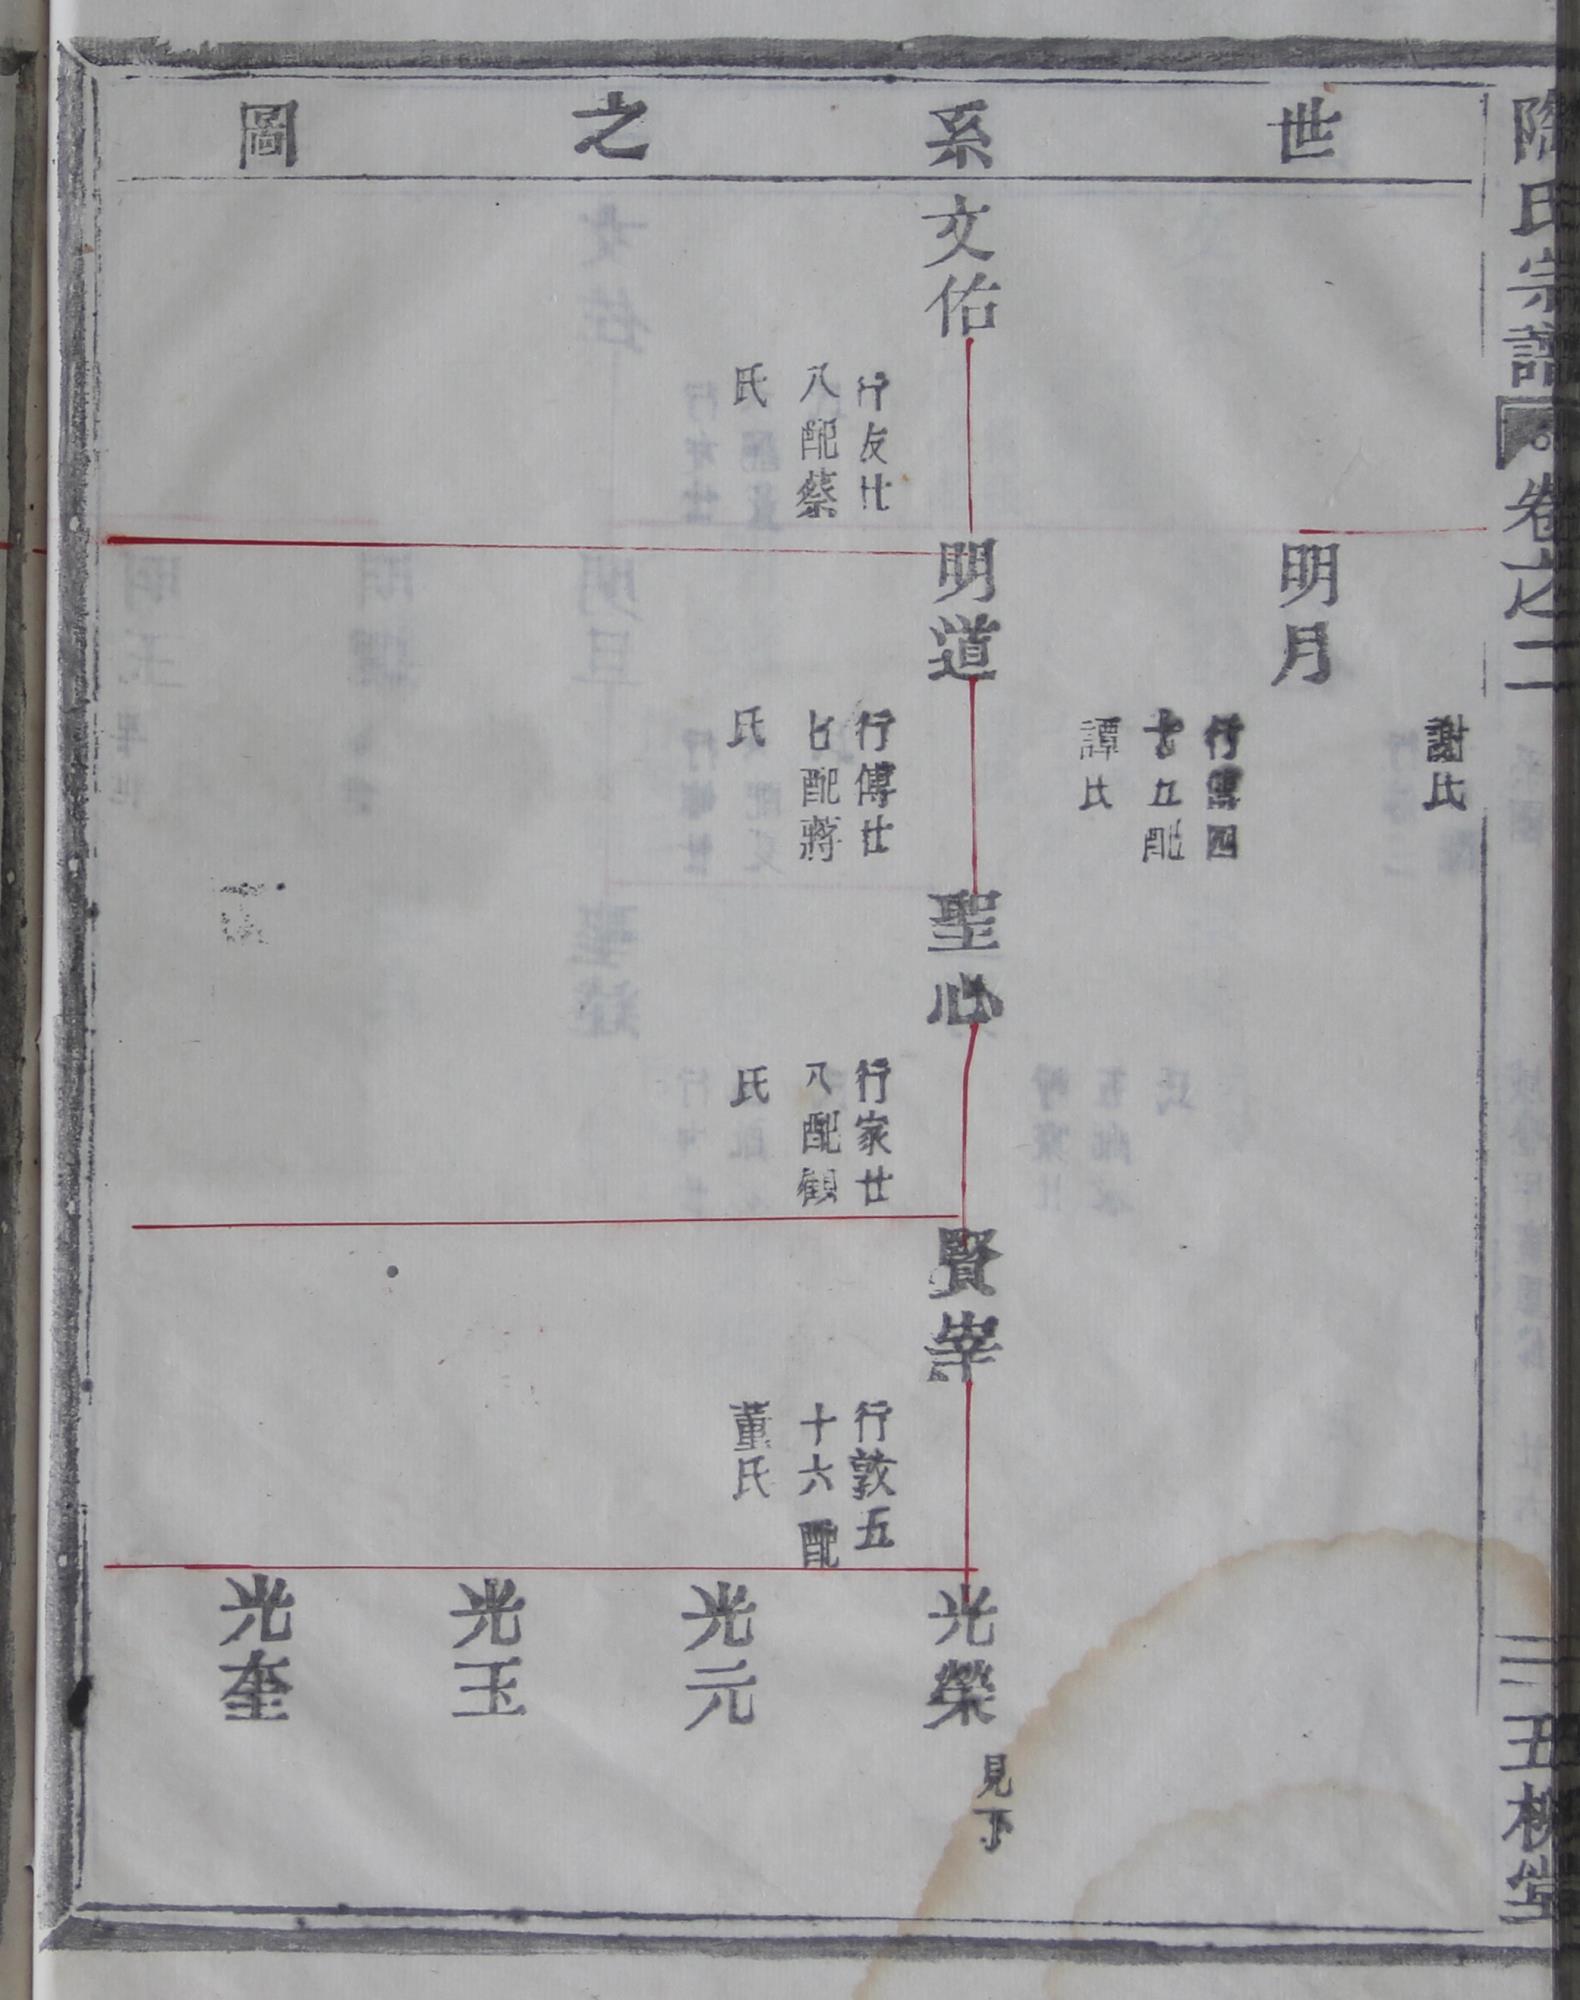 陶氏宗譜 卷之二 三 五柳堂
世系之圖
謝氏
明月
行傳四
十五配
譚氏
文佑
行友廿
八配蔡
氏
明道
行傳廿
七配蔣
氏
聖心
行家廿
八配顧
氏
賢宰
行敦五
十六配
董氏
光榮
見下
光元
光玉
光奎